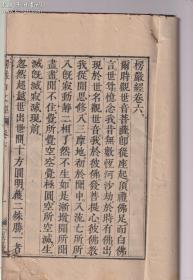 楞嚴經卷六
爾時觀世音菩薩即從座起頂禮佛足而白佛
言世尊憶念我昔無數恒河沙劫於時有佛出
現於世名觀世音我於彼佛發菩提心彼佛教
我從聞思修入三摩地初於聞中入流亡所所
入既寂動靜二相了然不生如是漸增聞所聞
盡盡聞不住覺所覺空空覺極圓空所空滅生
滅既滅寂滅現前
忽然超越世出世間十方圓明獲二殊勝一者